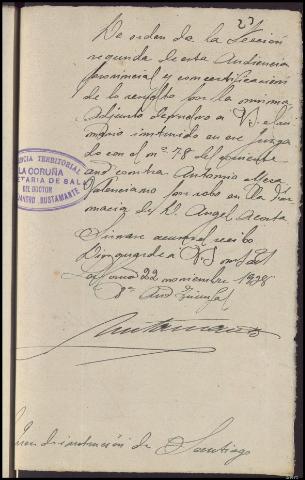 23
De orden de la Sección
segunda de esta Audiencia
provincial y con certificación
de lo resuelto por la misma
Adjunto devuelvo a VS el su
mario instruido en ese Juzga
do con el nº 78 del corriente
año contra Antonio Mera
Valenciano por robo en la Far
macia de D. Angel Acosta
Sirvase acusar recibo
Dios guarde a V.S. m. a.
22 noviembre 1928
AUDIENCIA TERRITORIAL
LA CORUÑA
SECRETARIA DE SALA
DEL DOCTOR
BUSTAMANTE
Bustamante
Juez de instrucción de Santiago